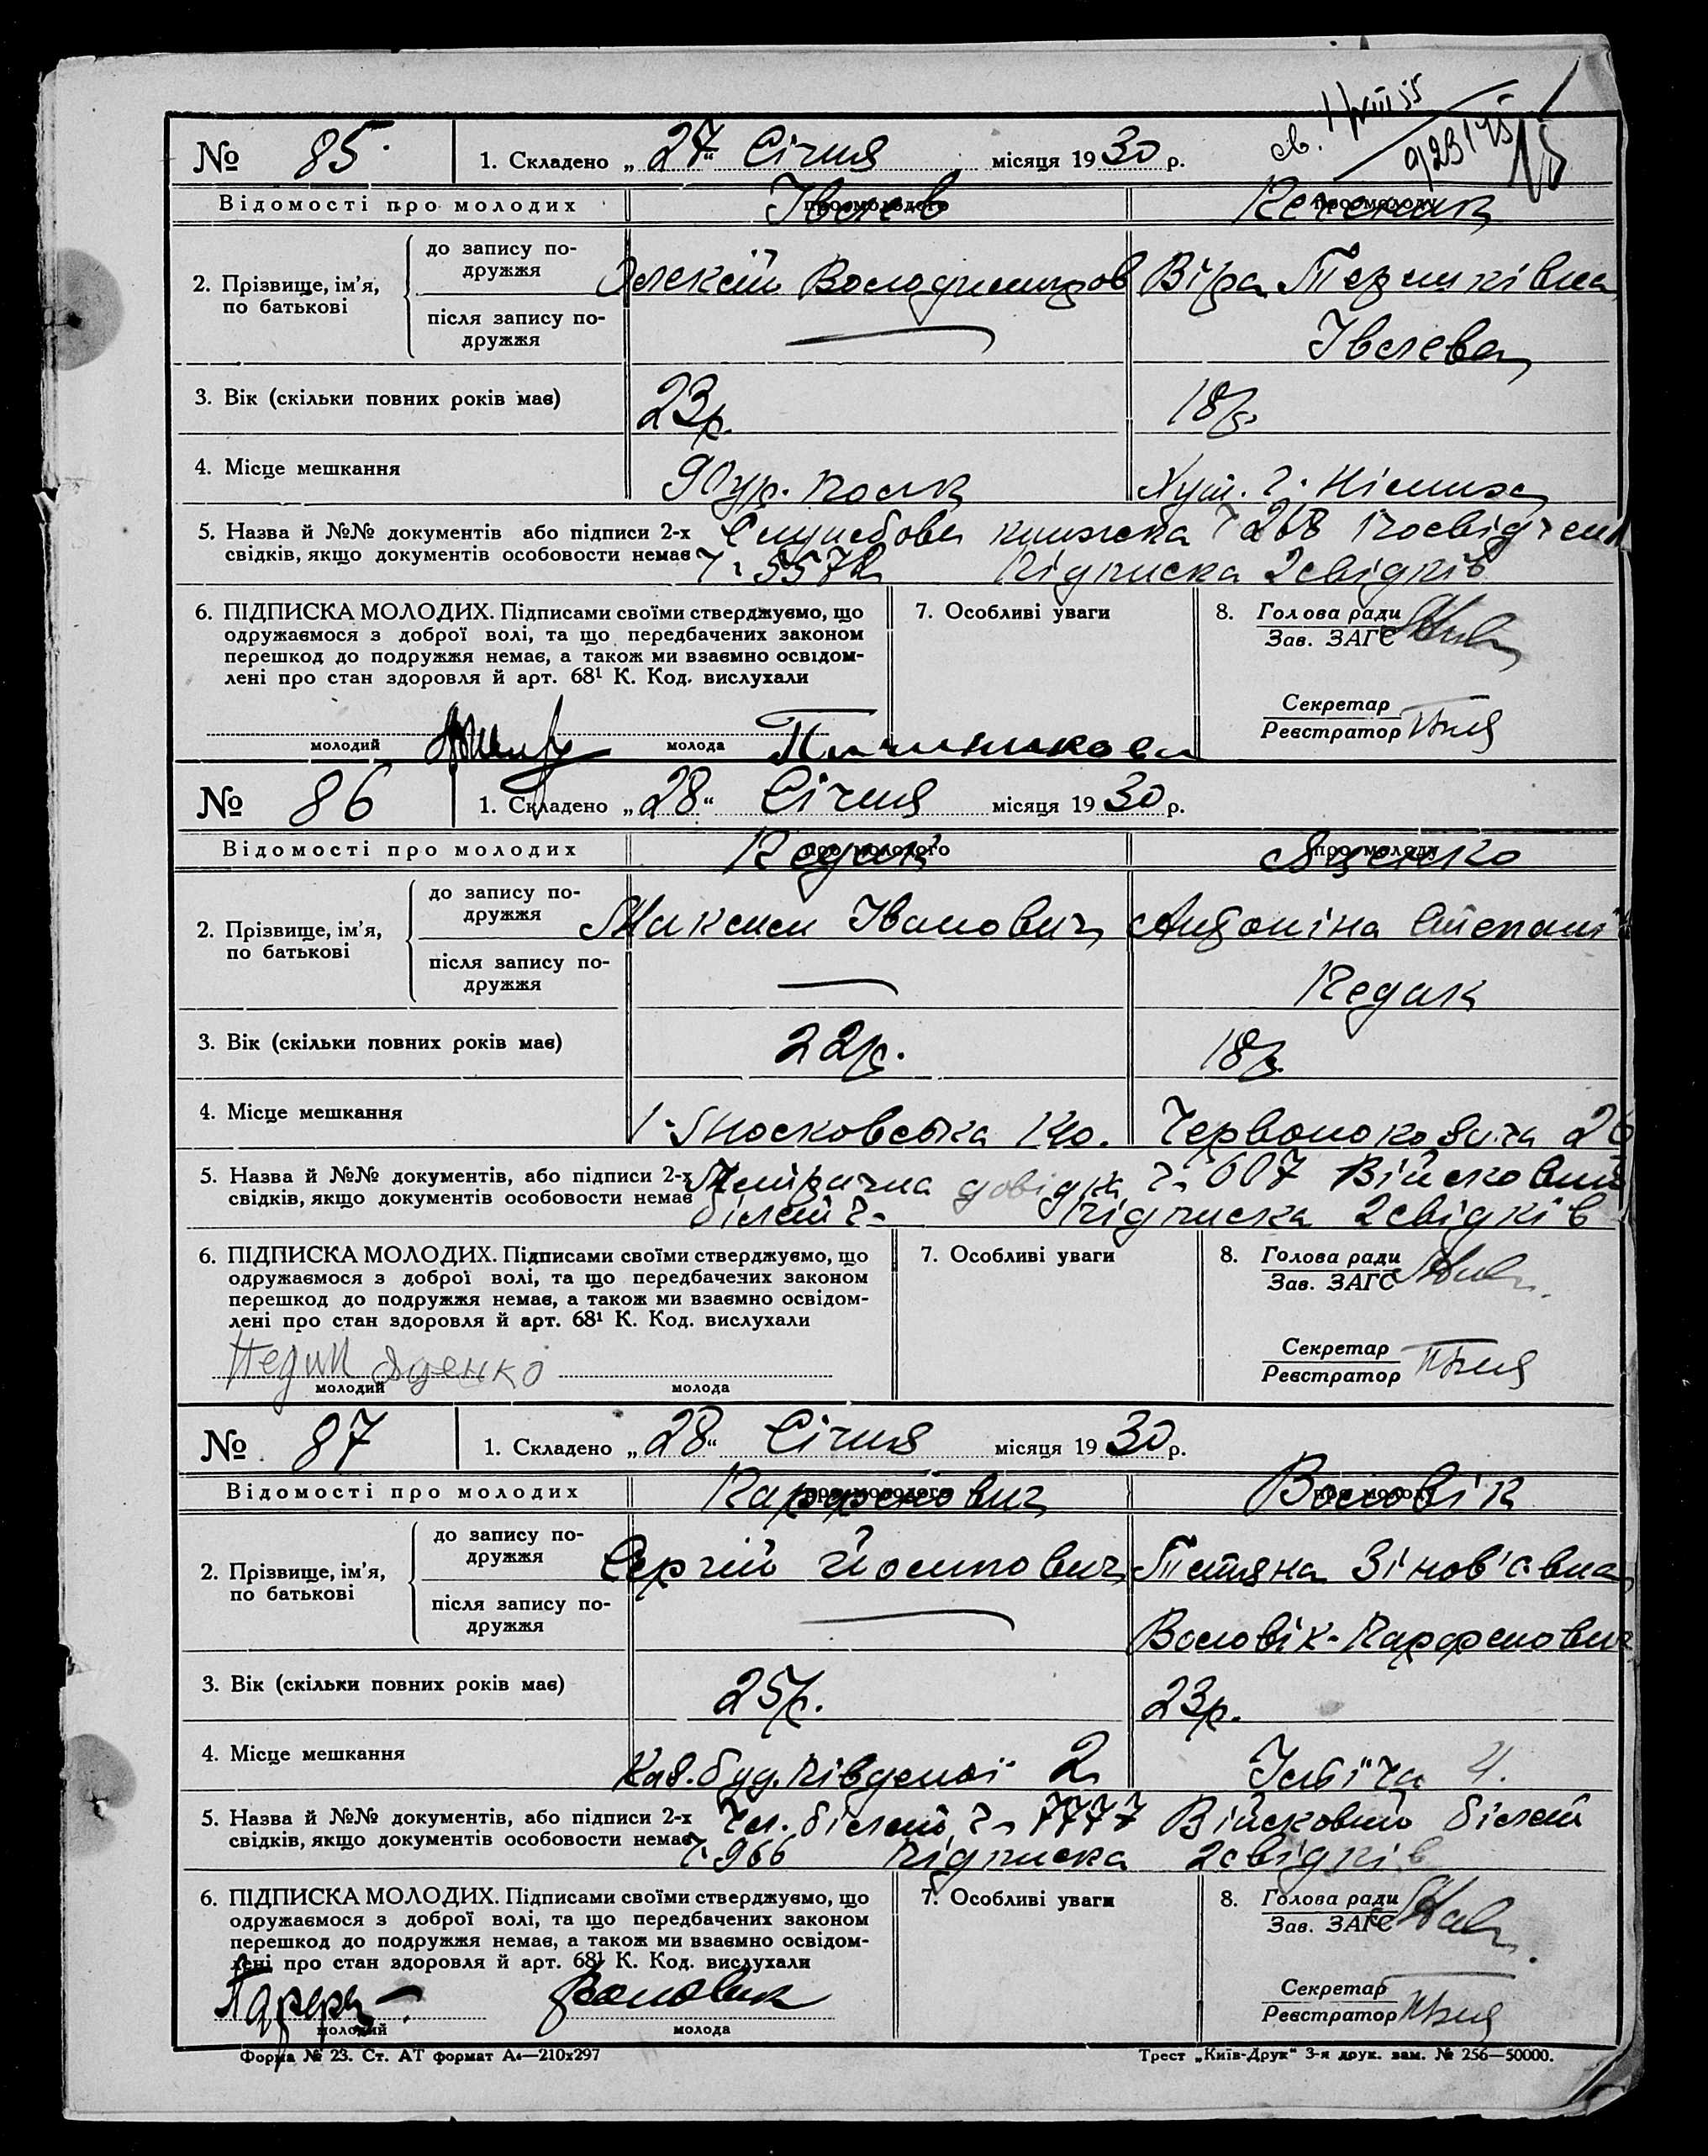 № 85. 1. Складено „27“ Січня місяця 1930 р.
Відомості про молодих про молодого про молоду
Івлєв
2. Прізвище, ім'я, по батькові
до запису подружжя
Олексій Володимиров Віра
після запису подружжя
Івлєва
3. Вік (скільки повних років має) 23р. 18р.
4. Місце мешкання
90 ур. полк
5. Назва й №№ документів або підписи 2-х Службова книжка ч 268
свідків, якщо документів особовости немає Підписка 2 свідків
6. ПІДПИСКА МОЛОДИХ. Підписами своїми стверджуємо, що
одружаємося з доброї волі, та що передбачених законом
перешкод до подружжя немає, а також ми взаємно освідом-
лені про стан здоровля й арт. 68¹ К. Код. вислухали
7. Особливі уваги
8. Голова ради
Зав. ЗАГС
Секретар
Реєстратор
молодий молода
№ 86 1. Складено „28“ Січня місяця 1930 р.
Відомості про молодих про молодого про молоду
Педик Яценко
2. Прізвище, ім'я, по батькові
до запису подружжя
Максим Іванович Антоніна Степані
після запису подружжя
Педик
3. Вік (скільки повних років має) 22р. 18р.
4. Місце мешкання
Московська
5. Назва й №№ документів, або підписи 2-х Метрична довідка ч 607 Військовий
свідків, якщо документів особовости немає білет ч- Підписка 2 свідків
6. ПІДПИСКА МОЛОДИХ. Підписами своїми стверджуємо, що
одружаємося з доброї волі, та що передбачених законом
перешкод до подружжя немає, а також ми взаємно освідом-
лені про стан здоровля й арт. 68¹ К. Код. вислухали
7. Особливі уваги
8. Голова ради
Зав. ЗАГС
Секретар
Реєстратор
Педик Яценко
молодий молода
№ 87 1. Складено „28“ Січня місяця 1930 р.
Відомості про молодих про молодого про молоду
Парфенович Воловік
2. Прізвище, ім'я, по батькові
до запису подружжя
Сергій Йосипович Тетяна Зінов'євна
після запису подружжя
Воловік-Парфенович
3. Вік (скільки повних років має) 25р. 23р.
4. Місце мешкання
Кол. буд. Південої 2
5. Назва й №№ документів, або підписи 2-х Чл. білет ч 7777 Військовий білет
свідків, якщо документів особовости немає ч. 966 Підписка 2 свідків
6. ПІДПИСКА МОЛОДИХ. Підписами своїми стверджуємо, що
одружаємося з доброї волі, та що передбачених законом
перешкод до подружжя немає, а також ми взаємно освідом-
лені про стан здоровля й арт. 68¹ К. Код. вислухали
7. Особливі уваги
8. Голова ради
Зав. ЗАГС
Секретар
Реєстратор
Воловик
молодий молода
Форма № 23. Ст. АТ формат А₄—210х297 Трест „Київ-Друк“ 3-я друк. зам. № 256—50000.